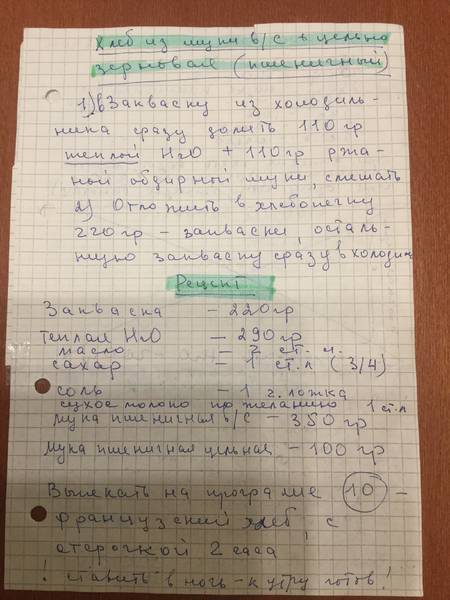 Хлеб из муки в/с + цельно
зерновая (пшеничный)
1) в Закваску из холодиль-
ника сразу долить 110 гр
теплой H2O + 110 гр ржа-
ной обдирной муки, смешать
2) Отложить в хлебопечку
220 гр - закваски, осталь-
ную закваску сразу в холодил
Рецепт
Закваска - 220 гр
теплая H2O - 290 гр
масло - 2 ст. л.
сахар - 1 ст. л (3/4)
соль - 1 ч. ложка
сухое молоко по желанию 1 ст. л
мука пшеничная в/с - 350 гр
мука пшеничная цельная - 100 гр
Выпекать на програме 10 -
французский хлеб, с
отсрочкой 2 часа
! ставить в ночь - к утру готов!